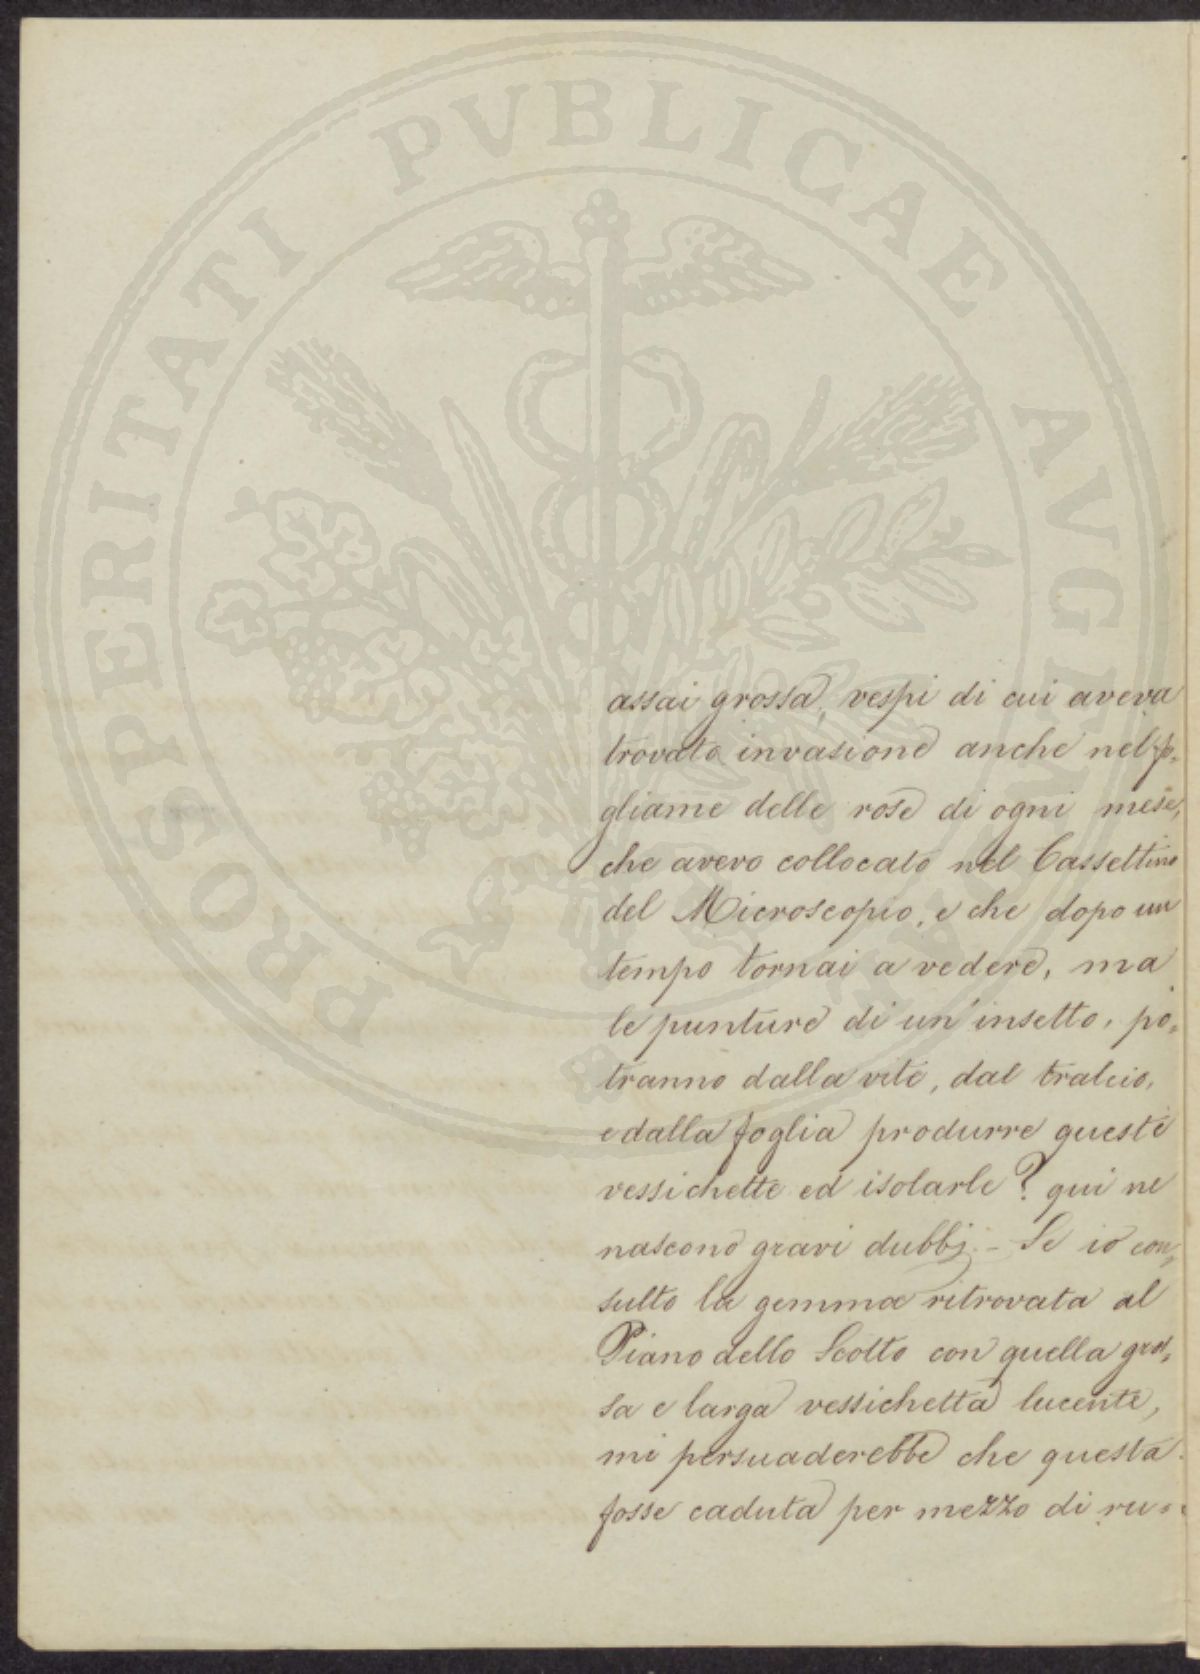 PROSPERITATI PVBLICAE AVGENDAE
assai grossa, vespi di cui aveva
trovato invasione anche nel fo=
gliame delle rose di ogni mese,
che avevo collocato nel Cassettino
del Microscopio, e che dopo un
tempo tornai a vedere, ma
le punture di un'insetto, po=
tranno dalla vite, dal tralcio,
e dalla foglia produrre queste
vessichette ed isolarle? qui ne
nascono gravi dubbj. – Se io con=
sulto la gemma ritrovata al
Piano dello Scotto con quella gros=
sa e larga vessichetta lucente,
mi persuaderebbe che questa
fosse caduta per mezzo di ru=